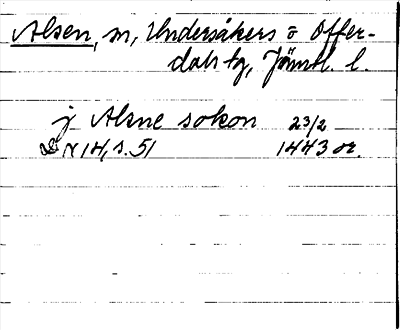 Alsen, sn, Undersåkers o Offer-
dals tg, Jämtl. l.
j Alsne sokon 23/2
DN 14, s. 51 1443 or.